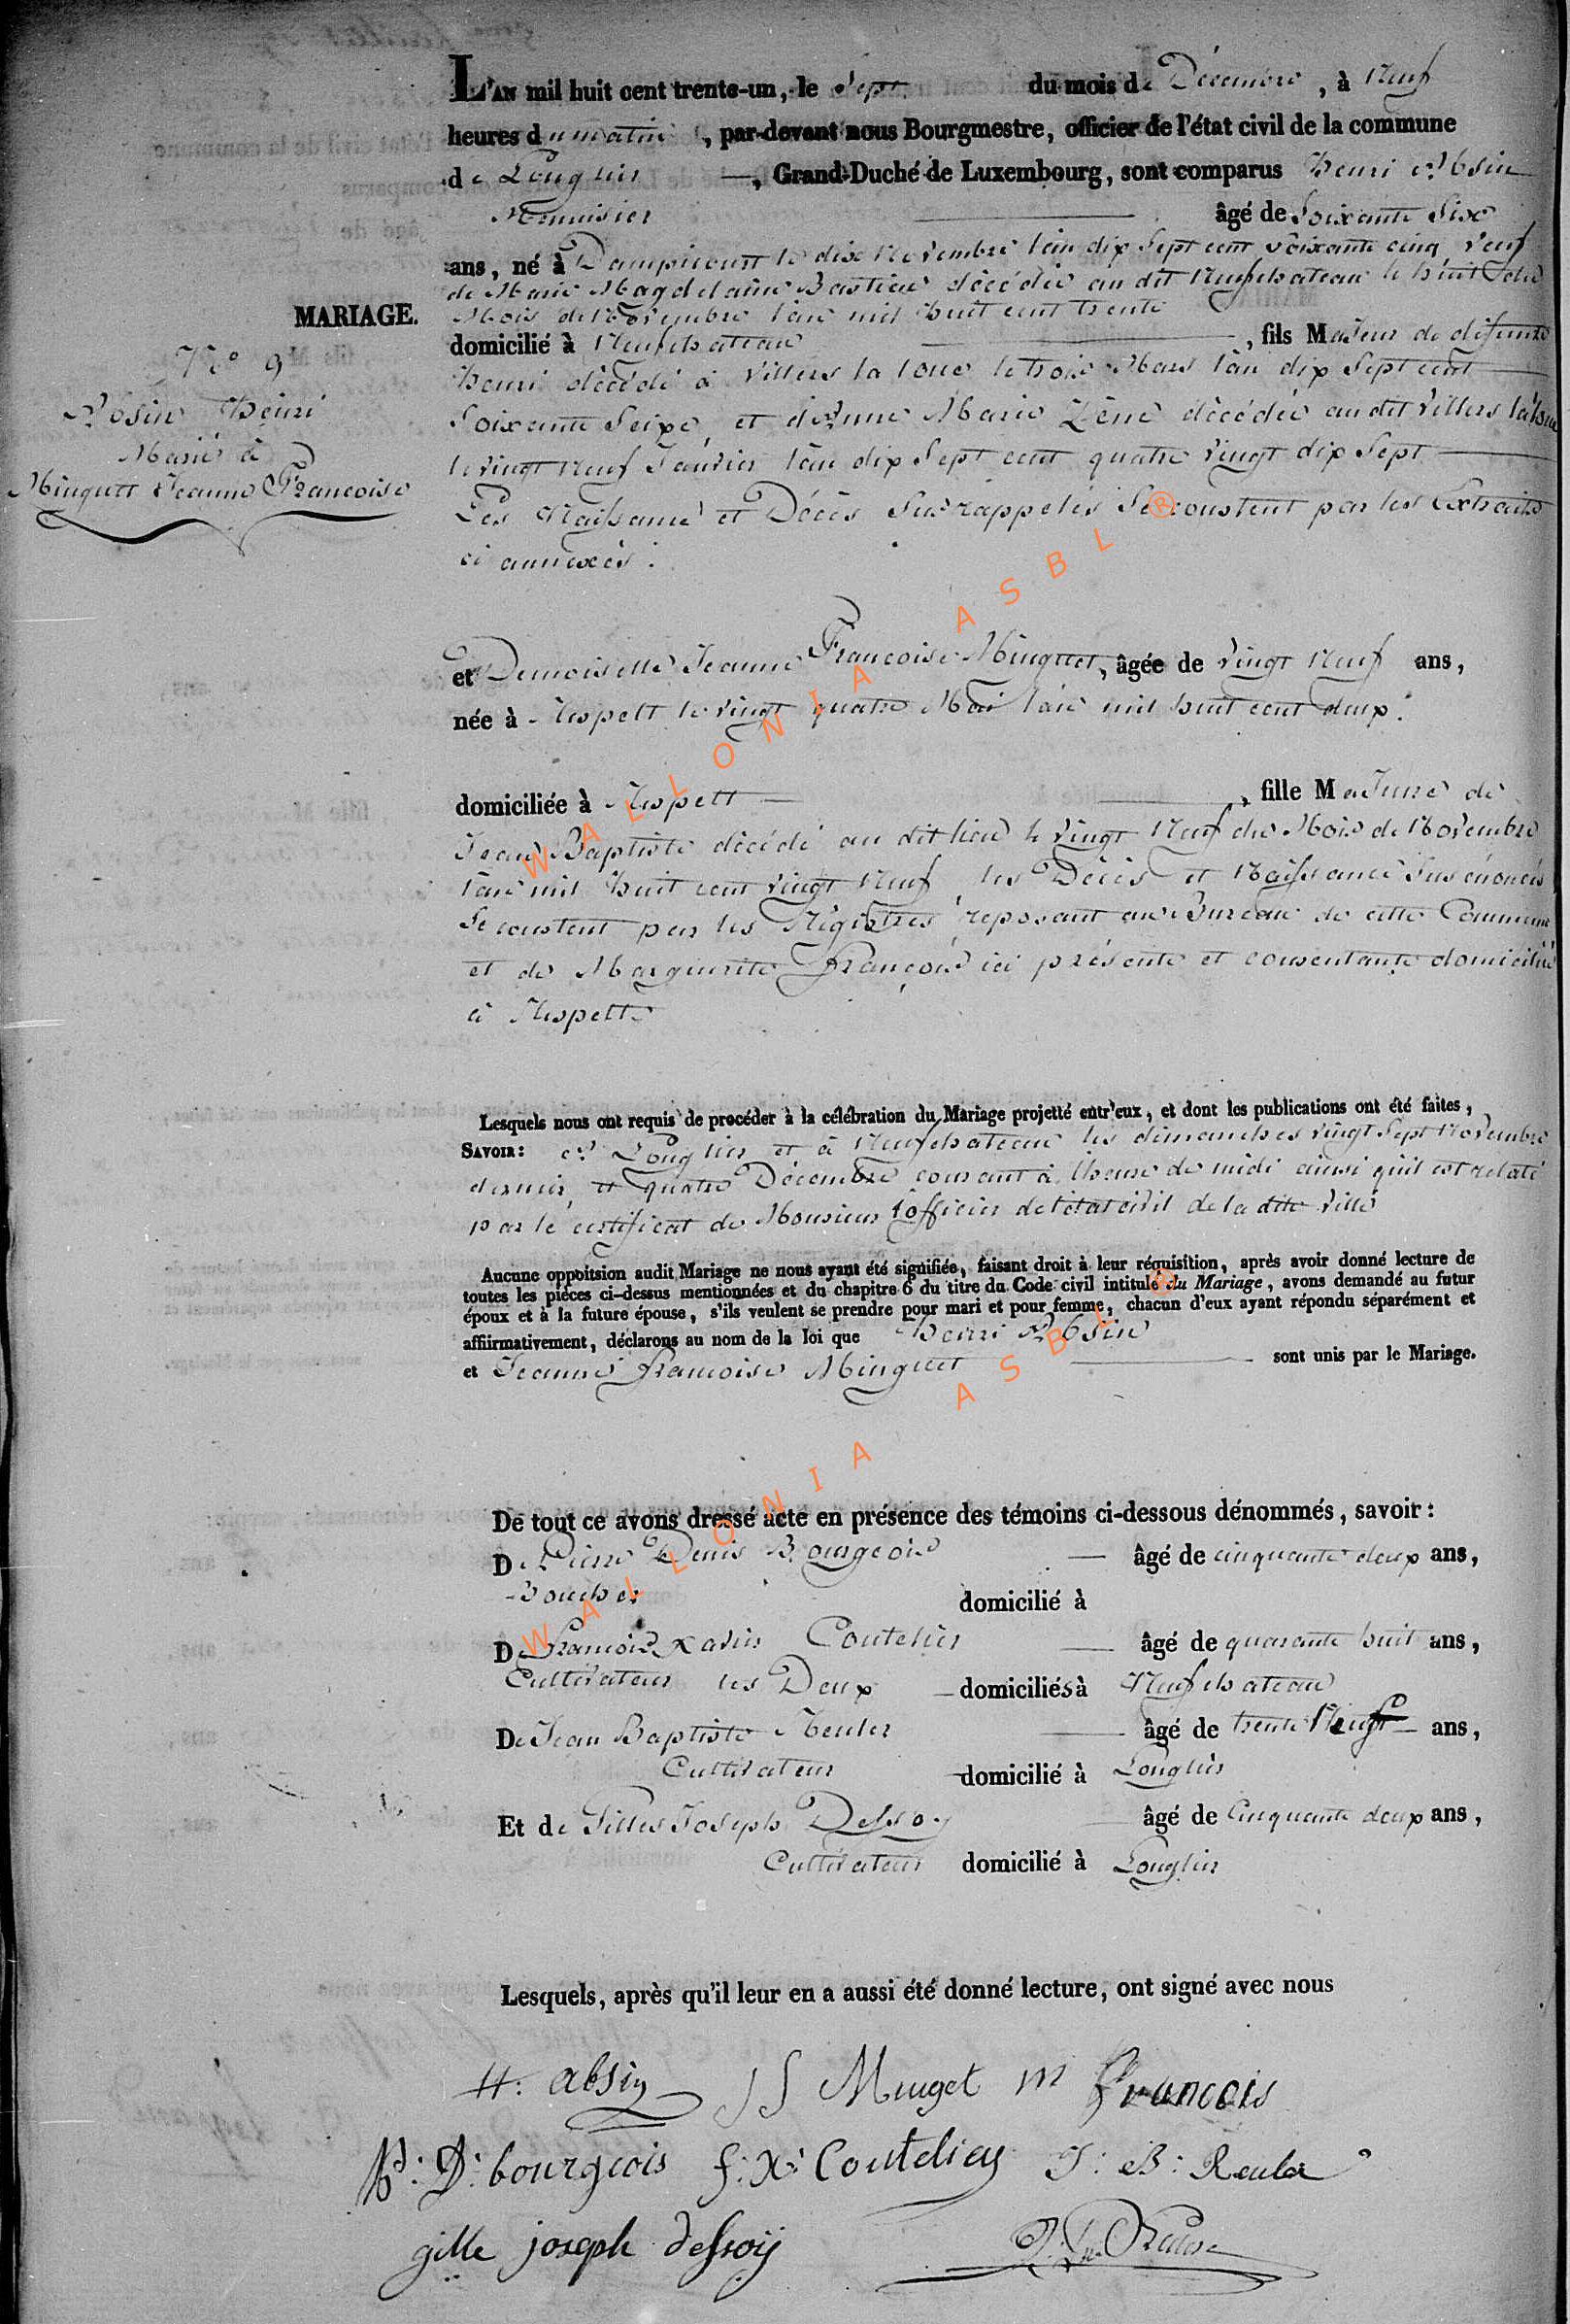 L'AN mil huit cent trente-un, le Sept du mois de Décembre, à Neuf
heures du matin, par-devant nous Bourgmestre, officier de l'état civil de la commune
de Longlier, Grand-Duché de Luxembourg, sont comparus Henri Absin
Menuisier âgé de Soixante Six
ans, né à Dampicourt le dix Novembre l'an dix Sept cent Soixante cinq veuf
de Marie Magdelaine Bastien décédée au dit Neufchateau le huit du
Mois de Novembre l'an mil huit cent trente
MARIAGE.
domicilié à Neufchateau, fils Majeur de défunts
N° 9
Henri décédé à Villers la loue le trois Mars l'an dix Sept cent
Absin Henri
Soixante Seize, et d'Anne Marie Zéne décédée au dit Villers la loue
Marié à
le vingt Neuf Janvier l'an dix Sept cent quatre vingt dix Sept
Minguet Jeanne Francoise
Les Naissance et Décès Susrappelés Se constent par les Extraits
ci annexés.
et Demoiselle Jeanne Francoise Minguet, âgée de vingt Neuf ans,
née à Respelt le vingt quatre Mai l'an mil huit cent deux.
domiciliée à Respelt, fille Majeure de
Jean Baptiste décédé au dit lieu le vingt Neuf du Mois de Novembre
l'an mil huit cent vingt Neuf, les Décès et Naissance Susénoncés
Se constent par les Régistres reposant au Bureau de cette Commune
et de Marguerite François ici présente et consentante domiciliée
à Respelt
Lesquels nous ont requis de procéder à la célébration du Mariage projetté entr'eux, et dont les publications ont été faites,
SAVOIR: à Longlier et à Neufchateau les dimanches vingt Sept Novembre
dernier, et quatre Décembre courant à l'heure de midi ainsi qu'il est relaté
par le certificat de Monsieur l'officier de l'état civil de la dite ville
Aucune oppoitsion audit Mariage ne nous ayant été signifiée, faisant droit à leur réquisition, après avoir donné lecture de
toutes les pièces ci-dessus mentionnées et du chapitre 6 du titre du Code civil intitulé du Mariage, avons demandé au futur
époux et à la future épouse, s'ils veulent se prendre pour mari et pour femme, chacun d'eux ayant répondu séparément et
affiirmativement, déclarons au nom de la loi que Henri Absin
et Jeanne francoise Minguet sont unis par le Mariage.
De tout ce avons dressé acte en présence des témoins ci-dessous dénommés, savoir:
De Pierre Denis Bourgeois âgé de cinquante deux ans,
Boucher domicilié à
De francois Xavier Coutelier âgé de quarante huit ans,
Cultivateur les Deux domiciliés à Neufchateau
De Jean Baptiste Reuler âgé de trente Neuf ans,
Cultivateur domicilié à Longlier
Et de Gilles Joseph Dessoy âgé de Cinquante deux ans,
Cultivateur domicilié à Longlier
Lesquels, après qu'il leur en a aussi été donné lecture, ont signé avec nous
H: absin JF Minget m francois
P: D: bourgeois f: X: Coutelier J: B: Reuler
gille joseph dessoÿ
WALLONIA ASBL ®
WALLONIA ASBL ®